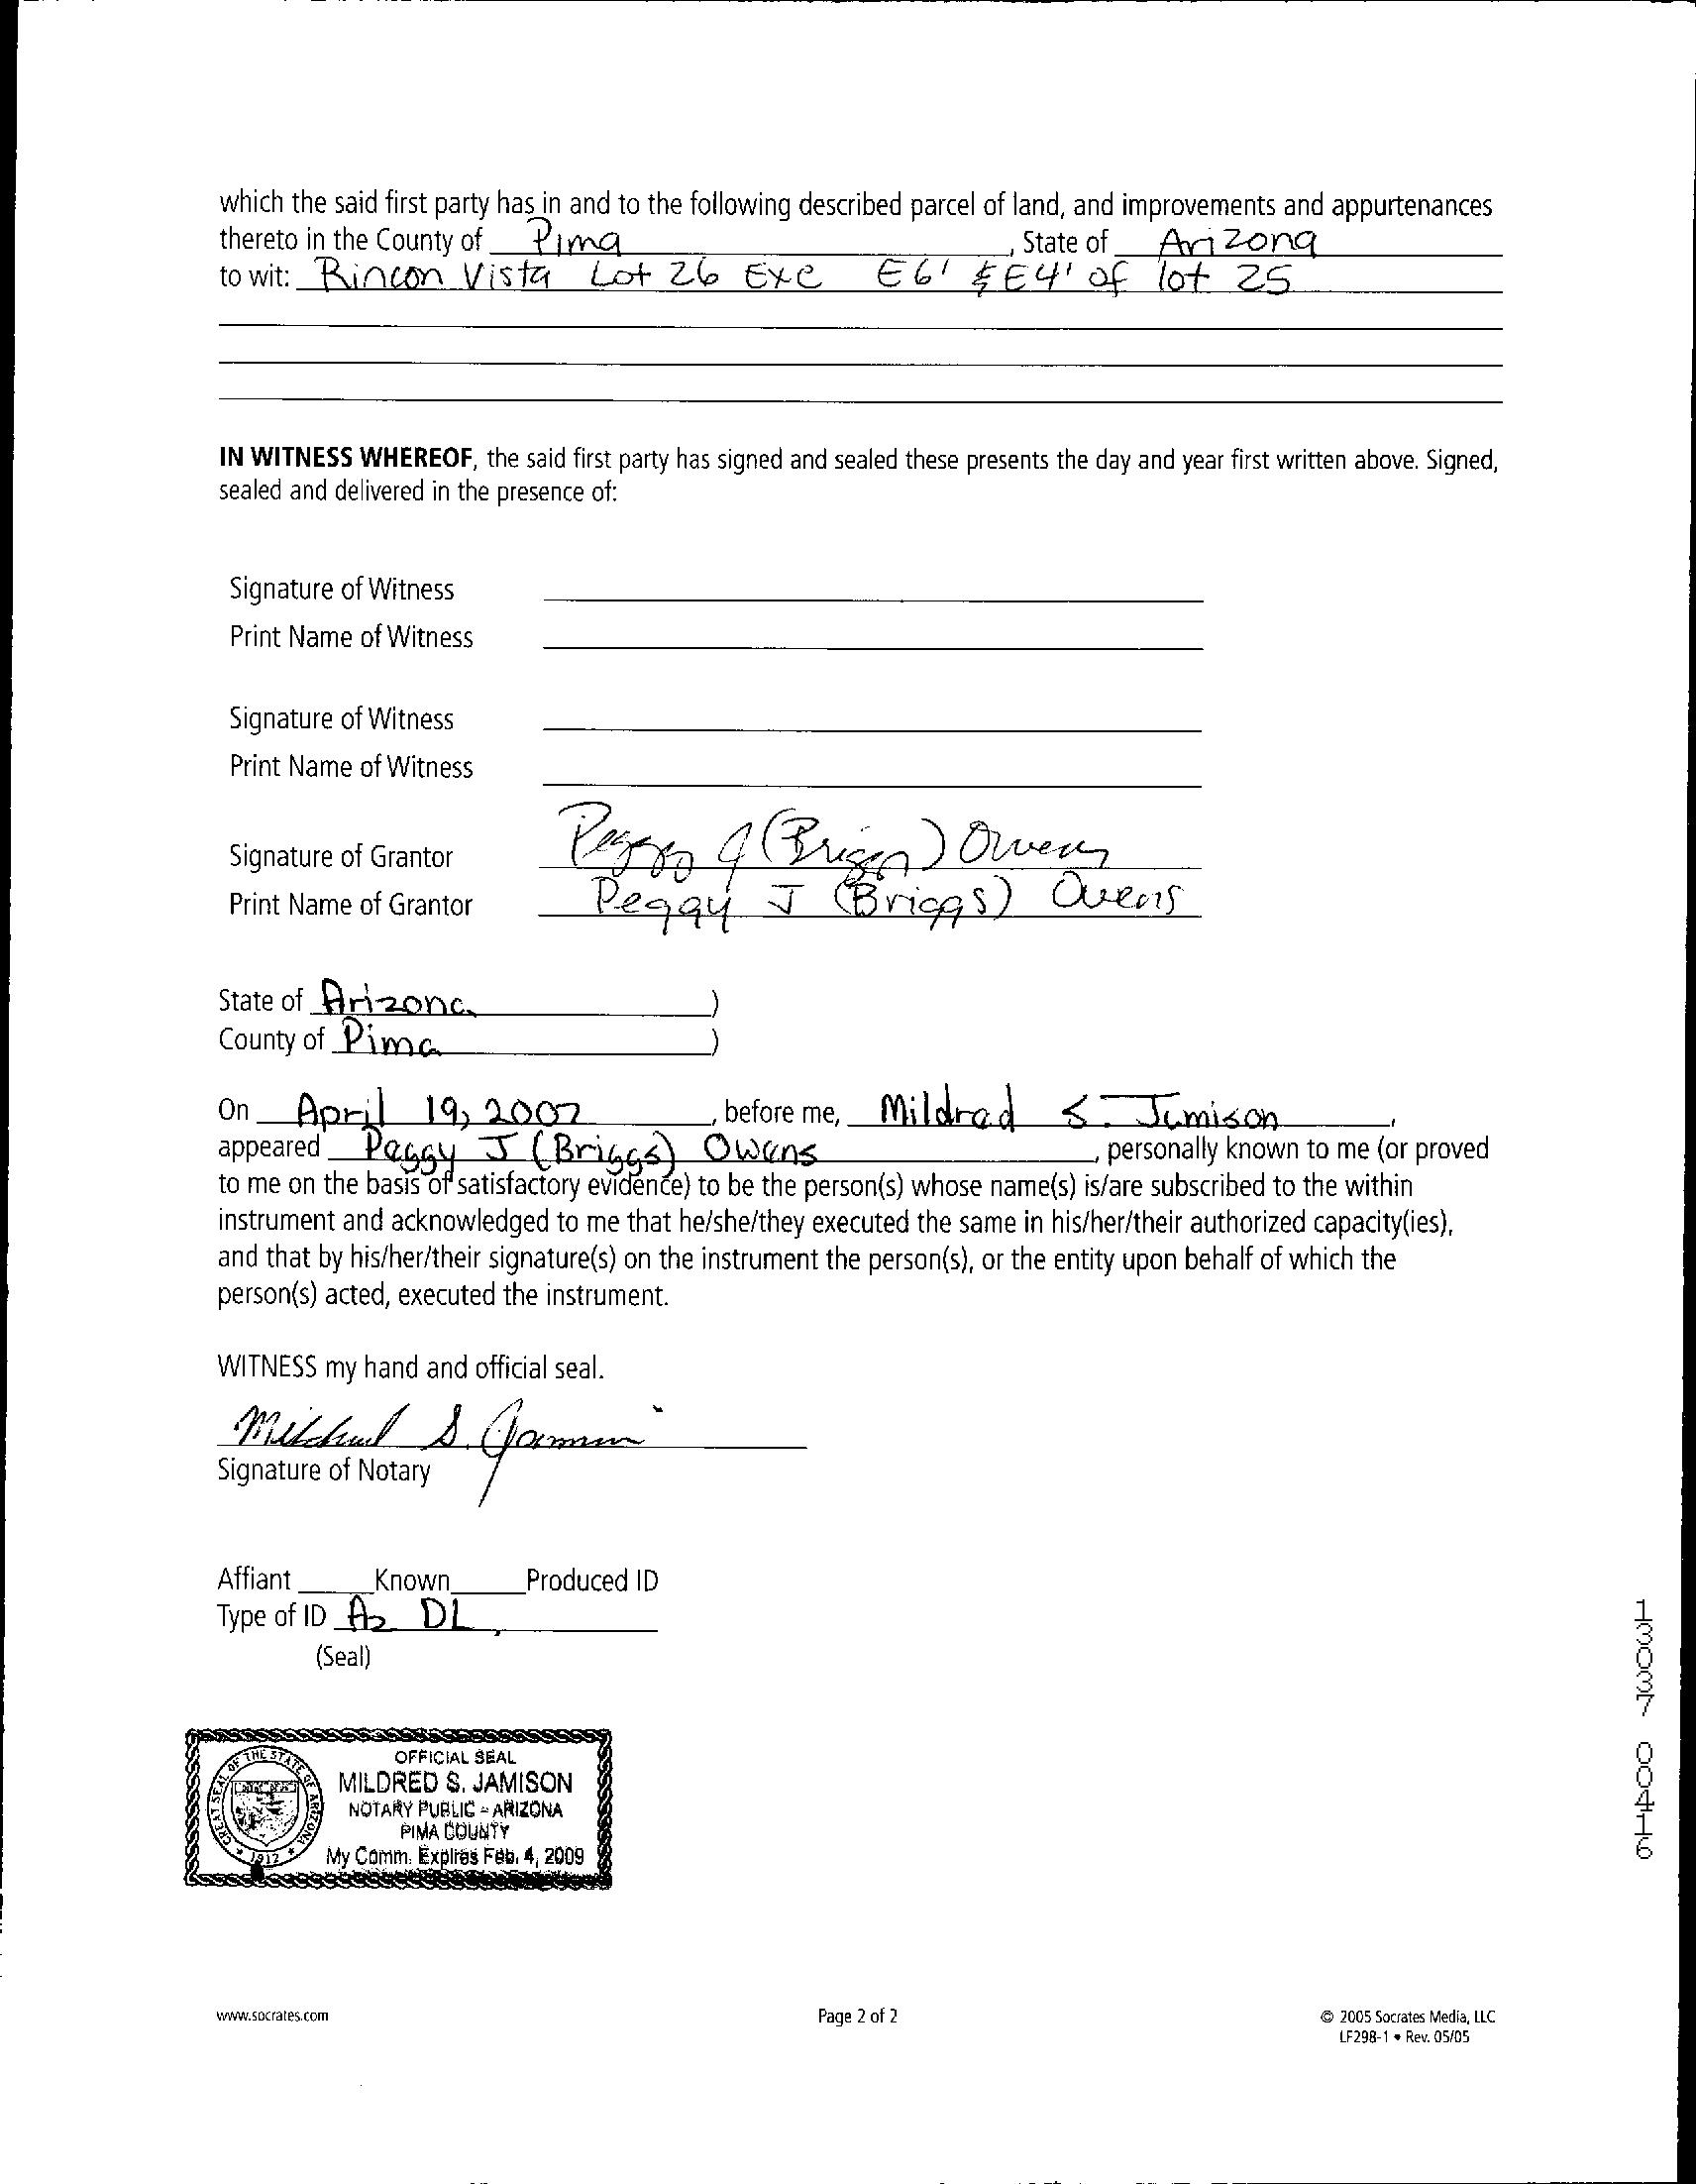 which the said first party has in and to the following described parcel of land, and improvements and appurtenances
thereto in the County of Pima, State of Arizona
to wit: Rincon Vista Lot 26 Exc E6' & E4' of lot 25
IN WITNESS WHEREOF, the said first party has signed and sealed these presents the day and year first written above. Signed,
sealed and delivered in the presence of:
Signature of Witness
Print Name of Witness
Signature of Witness
Print Name of Witness
Signature of Grantor Peggy J (Briggs) Owens
Print Name of Grantor Peggy J (Briggs) Owens
State of Arizona )
County of Pima )
On April 19, 2007, before me, Mildred S. Jamison,
appeared Peggy J (Briggs) Owens, personally known to me (or proved
to me on the basis of satisfactory evidence) to be the person(s) whose name(s) is/are subscribed to the within
instrument and acknowledged to me that he/she/they executed the same in his/her/their authorized capacity(ies),
and that by his/her/their signature(s) on the instrument the person(s), or the entity upon behalf of which the
person(s) acted, executed the instrument.
WITNESS my hand and official seal.
Mildred S. Jamison
Signature of Notary
Affiant Known Produced ID
Type of ID Az DL
(Seal)
GREAT SEAL OF THE STATE OF ARIZONA
1912
OFFICIAL SEAL
MILDRED S. JAMISON
NOTARY PUBLIC - ARIZONA
PIMA COUNTY
My Comm. Expires Feb. 4, 2009
13037 00416
www.socrates.com Page 2 of 2 © 2005 Socrates Media, LLC
LF298-1 • Rev. 05/05